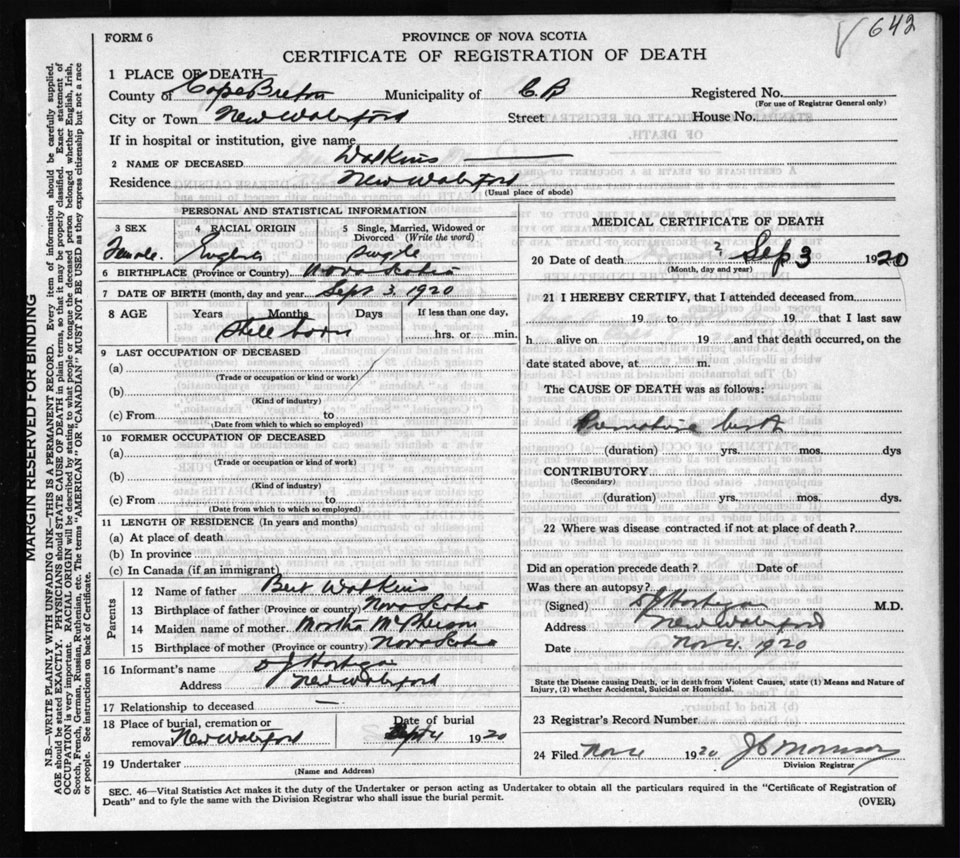 642
FORM 6
PROVINCE OF NOVA SCOTIA
CERTIFICATE OF REGISTRATION OF DEATH
1 PLACE OF DEATH—
County of Cape Breton Municipality of C B Registered No.
(For use of Registrar General only)
City or Town New Waterford Street House No.
If in hospital or institution, give name
2 NAME OF DECEASED Watkins
Residence New Waterford
(Usual place of abode)
PERSONAL AND STATISTICAL INFORMATION
3 SEX 4 RACIAL ORIGIN 5 Single, Married, Widowed or Divorced (Write the word)
Female. English Single
6 BIRTHPLACE (Province or Country) Nova Scotia
7 DATE OF BIRTH (month, day and year) Sept 3, 1920
8 AGE Years Months Days If less than one day,
Still born hrs. or min.
9 LAST OCCUPATION OF DECEASED
(a)
(Trade or occupation or kind or work)
(b)
(Kind of industry)
(c) From to
(Date from which to which so employed)
10 FORMER OCCUPATION OF DECEASED
(a)
(Trade or occupation or kind of work)
(b)
(Kind of industry)
(c) From to
(Date from which to which so employed)
11 LENGTH OF RESIDENCE (In years and months)
(a) At place of death
(b) In province
(c) In Canada (if an immigrant)
Parents
12 Name of father Bert Watkins
13 Birthplace of father (Province or country) Nova Scotia
14 Maiden name of mother Martha McPherson
15 Birthplace of mother (Province or country) Nova Scotia
16 Informant's name
Address New Waterford
17 Relationship to deceased —
18 Place of burial, cremation or removal New Waterford
Date of burial Sept 4 1920
19 Undertaker
(Name and Address)
MEDICAL CERTIFICATE OF DEATH
20 Date of death ? Sep 3 1920
(Month, day and year)
21 I HEREBY CERTIFY, that I attended deceased from
19 to 19 that I last saw
h alive on 19 and that death occurred, on the
date stated above, at m.
The CAUSE OF DEATH was as follows:
Premature birth
(duration) yrs. mos. dys
CONTRIBUTORY
(Secondary)
(duration) yrs. mos. dys.
22 Where was disease contracted if not at place of death?
Did an operation precede death? Date of
Was there an autopsy?
(Signed) M.D.
Address New Waterford
Date Nov 4. 1920
State the Disease causing Death, or in death from Violent Causes, state (1) Means and Nature of
Injury, (2) whether Accidental, Suicidal or Homicidal.
23 Registrar's Record Number
24 Filed Nov 4 1920
Division Registrar
SEC. 46—Vital Statistics Act makes it the duty of the Undertaker or person acting as Undertaker to obtain all the particulars required in the "Certificate of Registration of
Death" and to fyle the same with the Division Registrar who shall issue the burial permit.
(OVER)
MARGIN RESERVED FOR BINDING
N.B.—WRITE PLAINLY WITH UNFADING INK—THIS IS A PERMANENT RECORD. Every item of information should be carefully supplied.
AGE should be stated EXACTLY. PHYSICIANS should STATE CAUSE OF DEATH in plain terms, so that it may be properly classified. Exact statement of
OCCUPATION is very important. RACIAL ORIGIN will be described by stating to what people or tongue the deceased person belonged whether English, Irish,
Scotch, French, German, Russian, Ruthenian, etc. The terms "AMERICAN" OR "CANADIAN" MUST NOT BE USED as they express citizenship but not a race
or people. See instructions on back of Certificate.